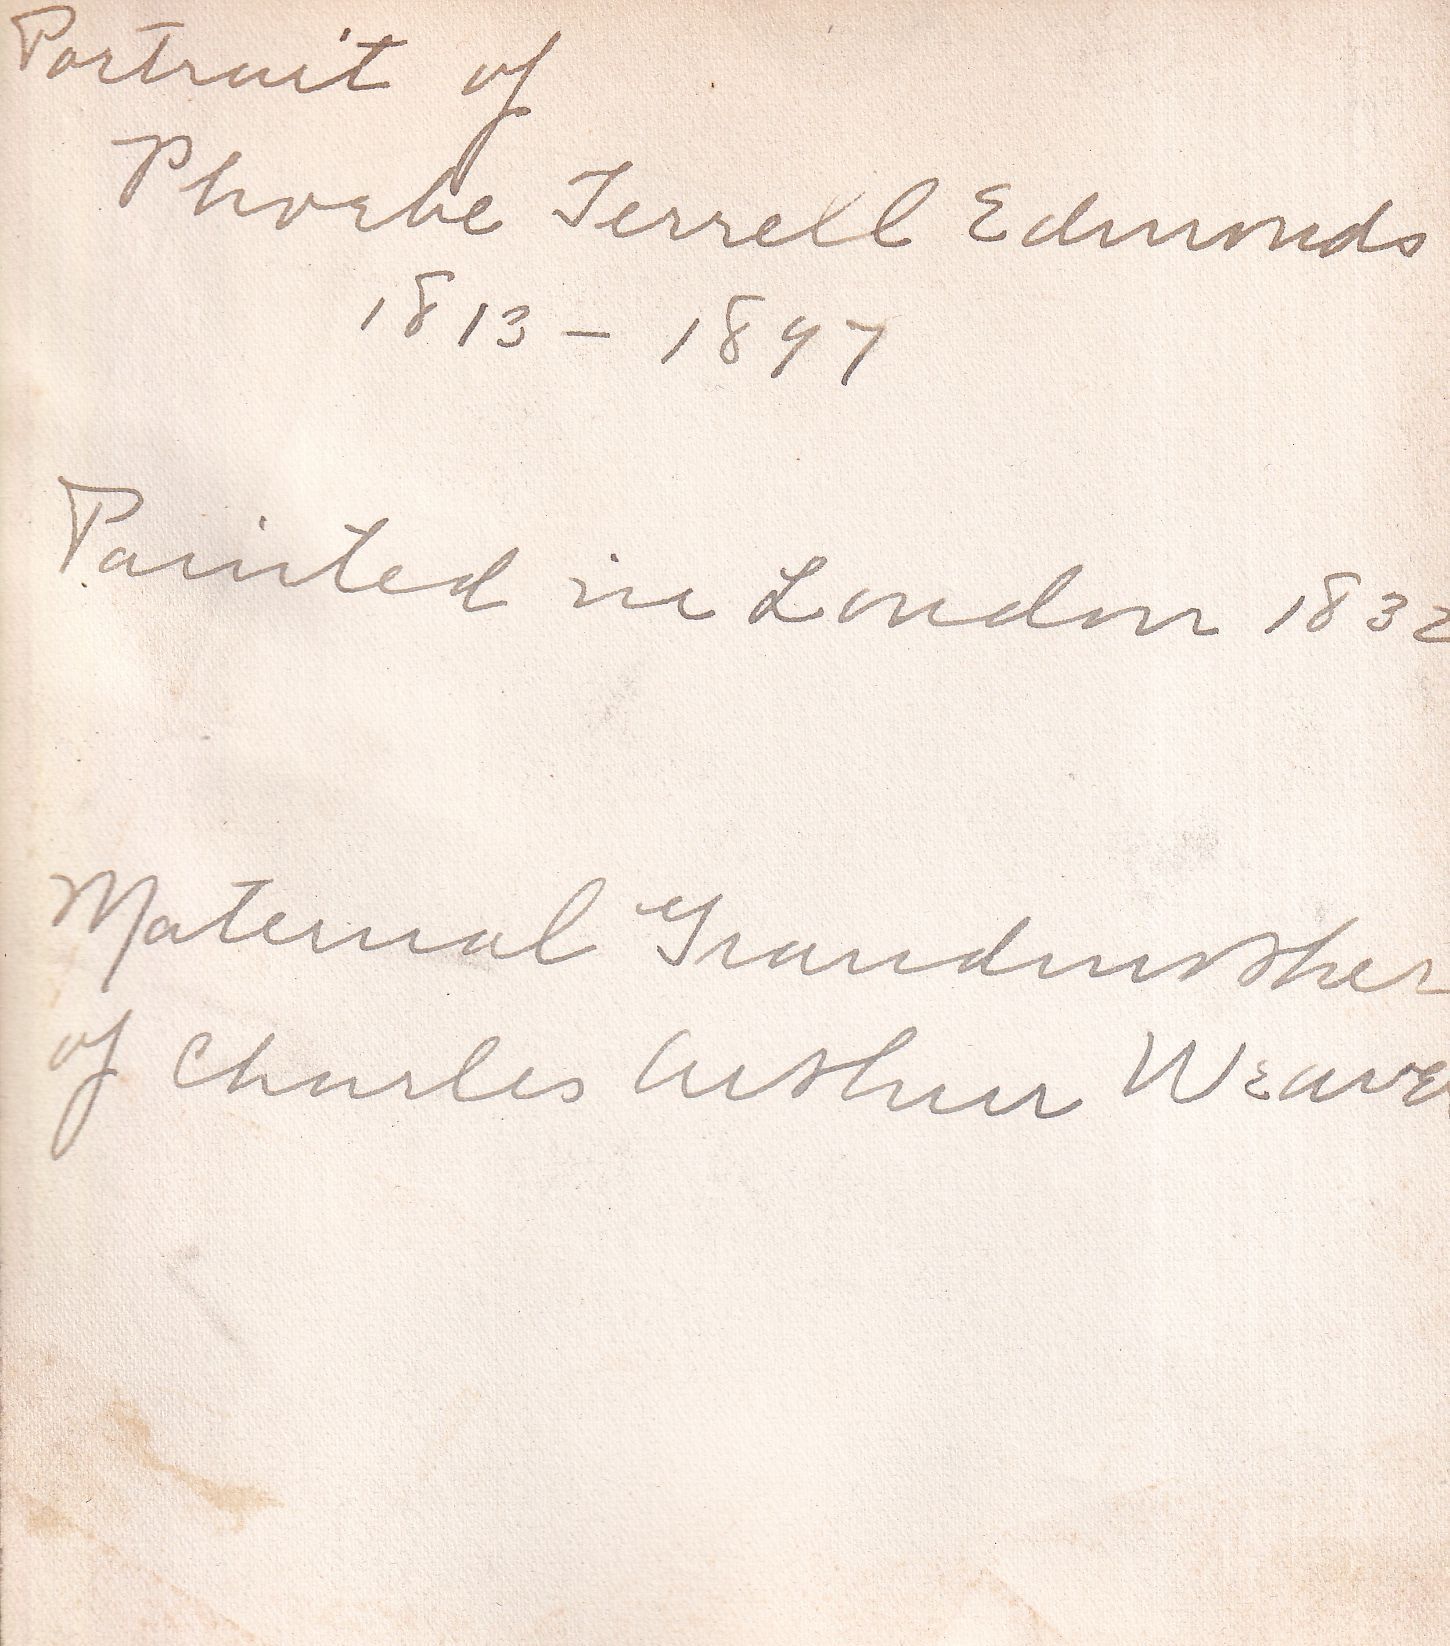 Portrait of
Phoebe Terrell Edmonds
1813 - 1897
Painted in London 1832
Maternal Grandmother
of Charles Arthur Weaver